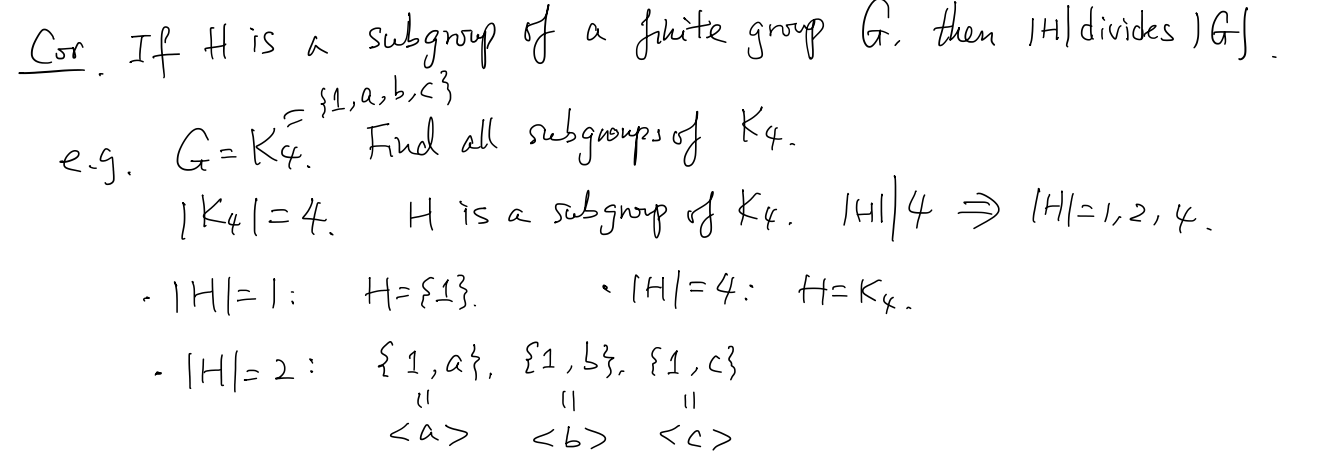 Cor. If H is a subgroup of a finite group G, then |H| divides |G|.
= {1, a, b, c}
e.g. G = K4. Find all subgroups of K4.
|K4| = 4. H is a subgroup of K4. |H| | 4 ⇒ |H| = 1, 2, 4.
· |H| = 1: H = {1}. · |H| = 4: H = K4.
· |H| = 2: {1, a}, {1, b}, {1, c}
|| || ||
<a> <b> <c>